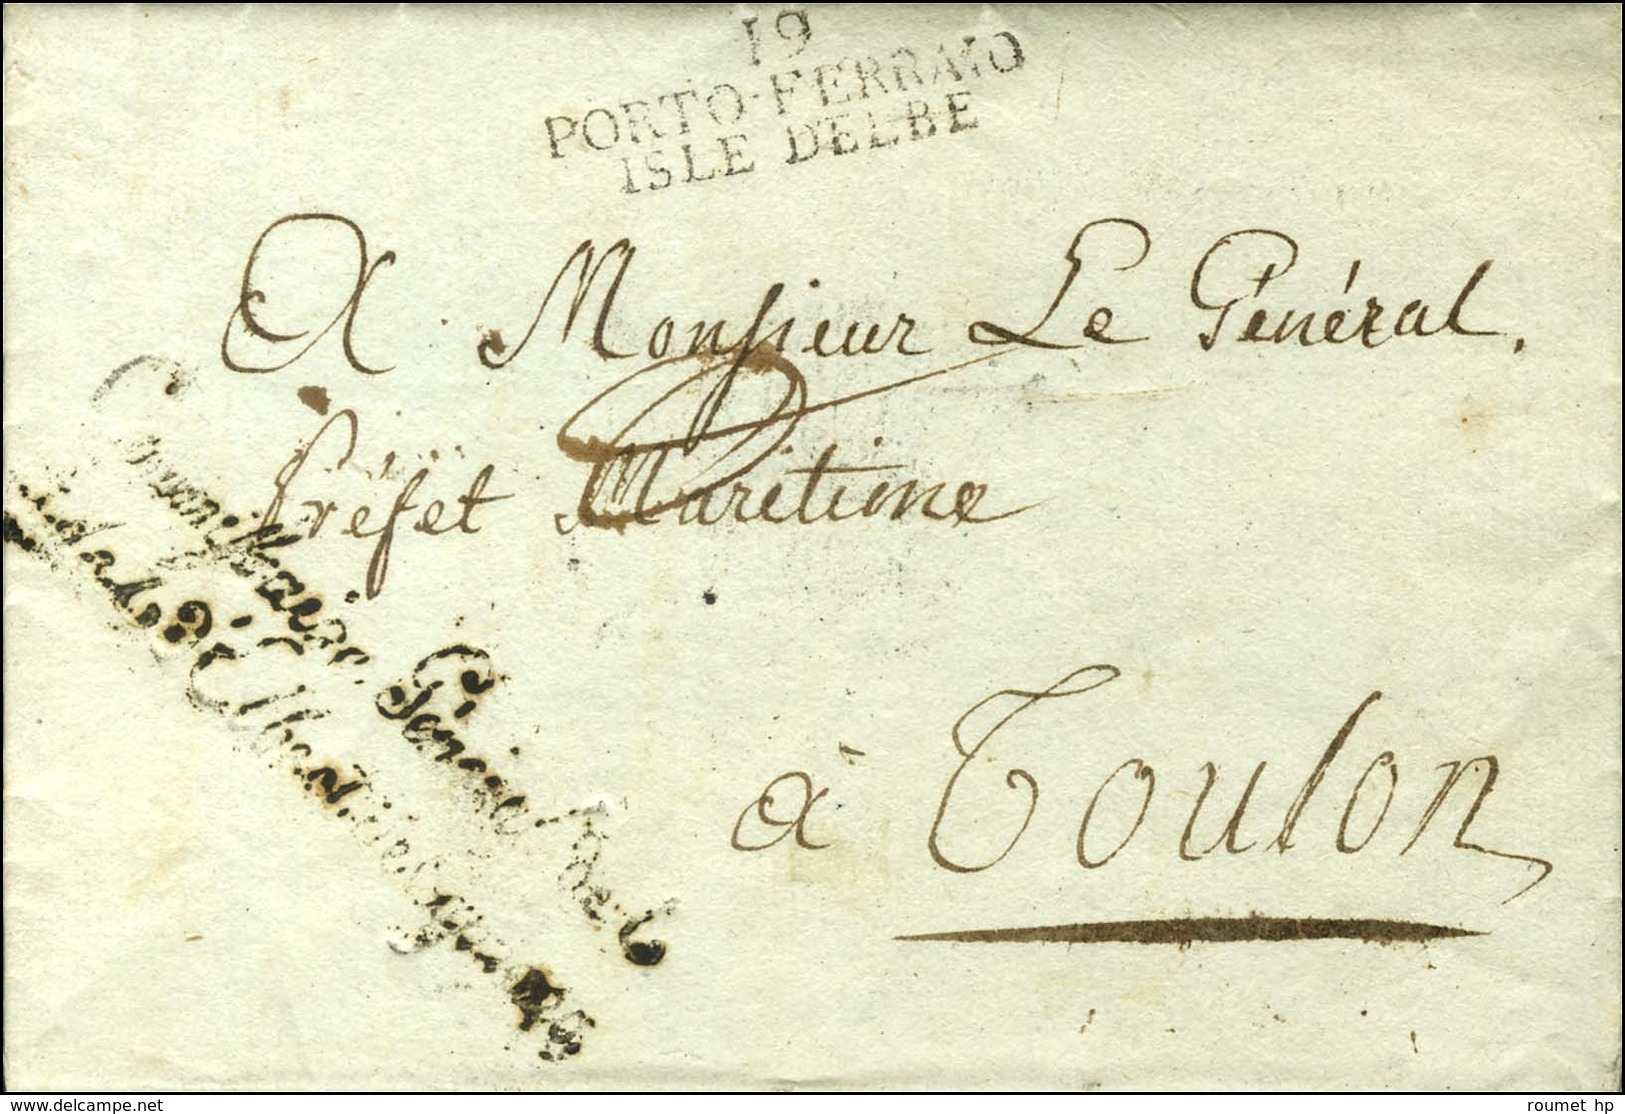 19
PORTO-FERRAIO
ISLE DELBE
A Monsieur Le Général.
Préfet Maritime
à Toulon
Commissaire Général
de l'Isle d'Elbe
www.delcampe.net
roumet_hp